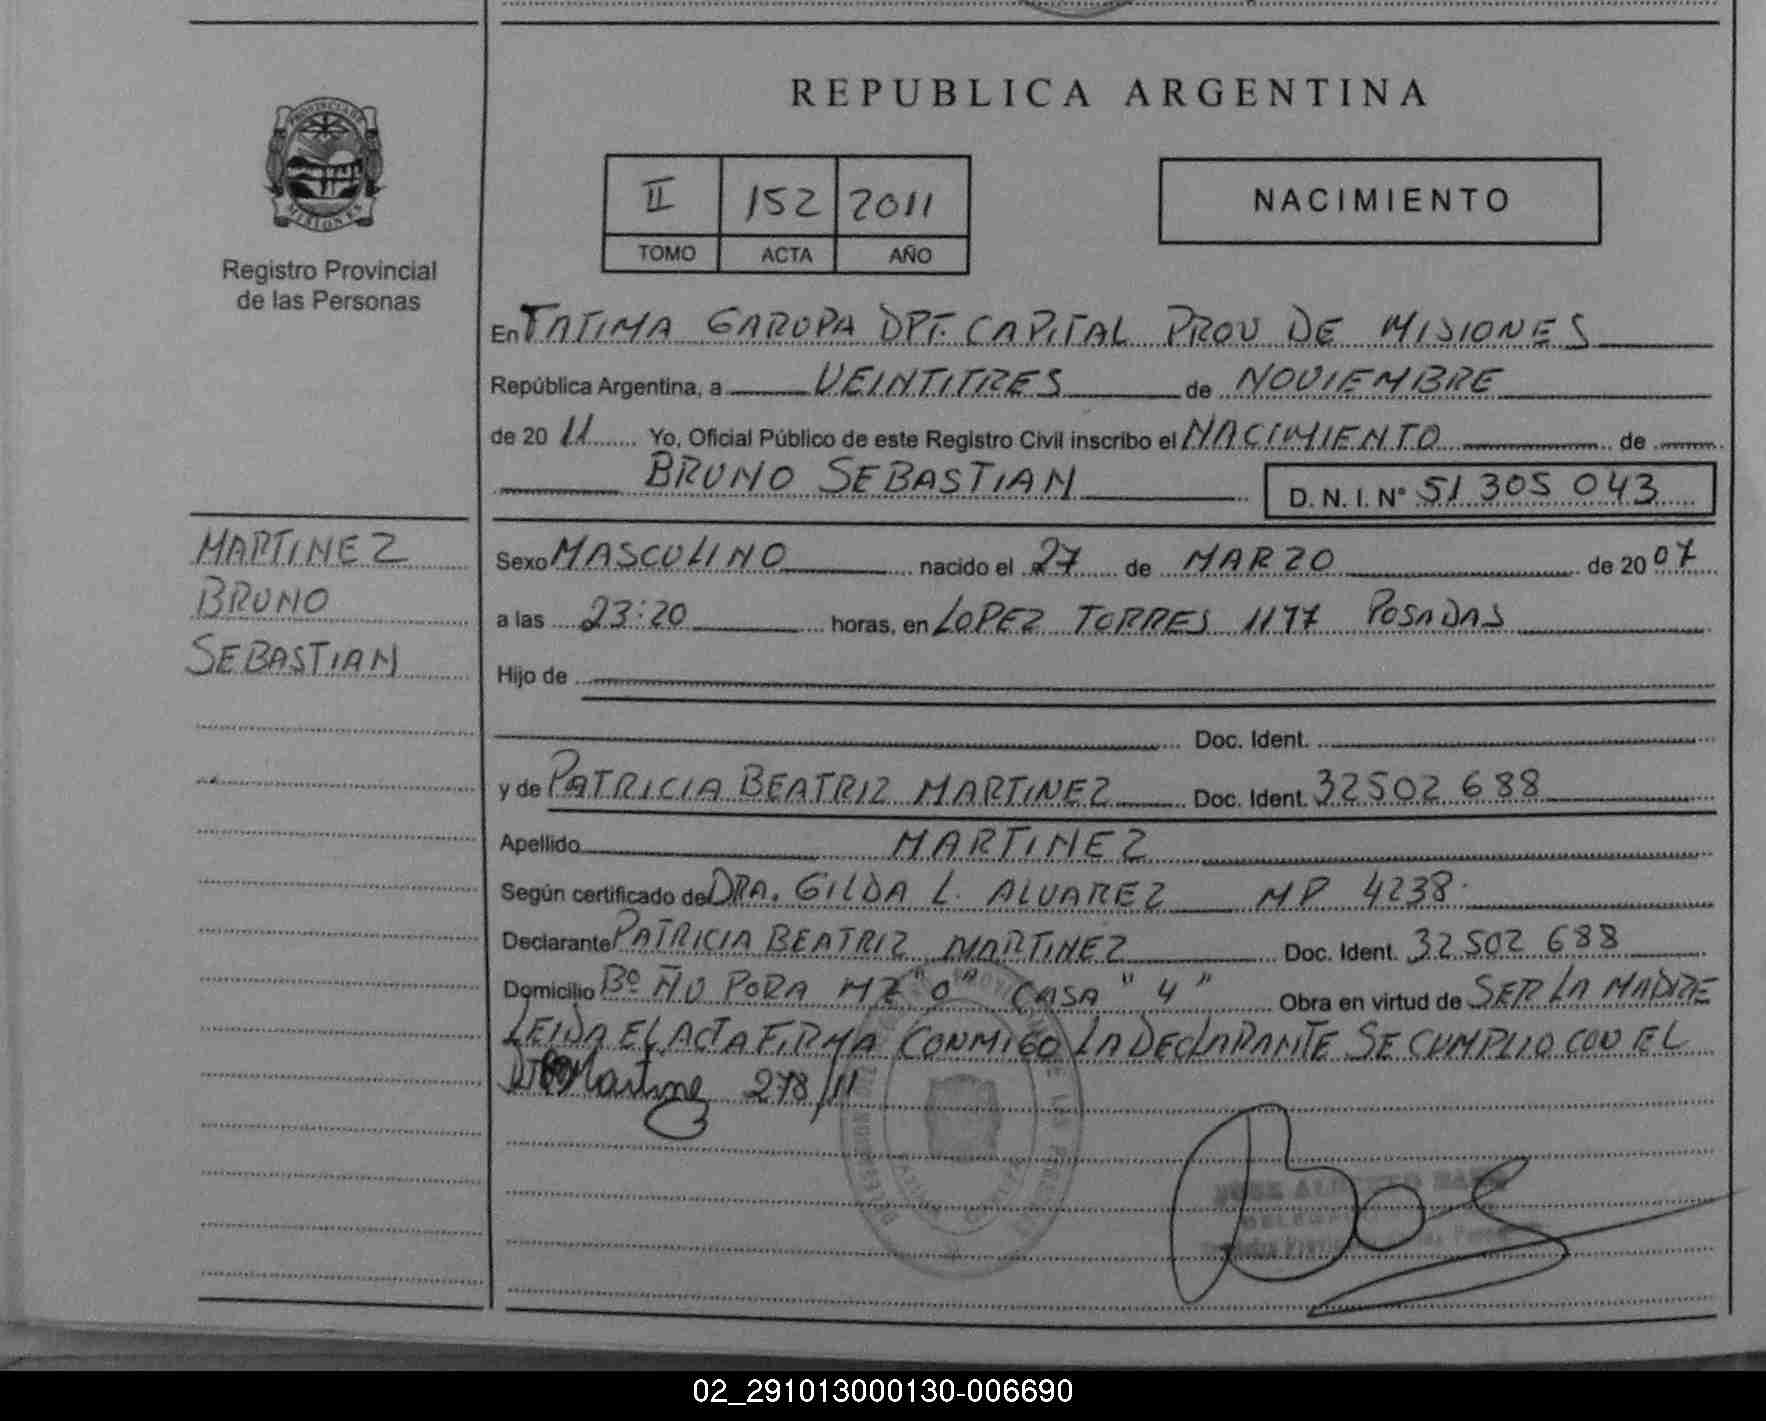 REPUBLICA ARGENTINA
PROVINCIA DE
MISIONES
Registro Provincial
de las Personas
II 152 2011
TOMO ACTA AÑO
NACIMIENTO
En FATIMA GARUPA DPT. CAPITAL PROV DE MISIONES
República Argentina, a VEINTITRES de NOVIEMBRE
de 20 11 Yo, Oficial Público de este Registro Civil inscribo el NACIMIENTO de
BRUNO SEBASTIAN D. N. I. N° 51 305 043
MARTINEZ
BRUNO
SEBASTIAN
Sexo MASCULINO nacido el 27 de MARZO de 20 07
a las 23:20 horas, en LOPEZ TORRES 1177 POSADAS
Hijo de
Doc. Ident.
y de PATRICIA BEATRIZ MARTINEZ Doc. Ident. 32502 688
Apellido MARTINEZ
Según certificado de DRA. GILDA L. ALVAREZ MP 4238
Declarante PATRICIA BEATRIZ MARTINEZ Doc. Ident. 32 502 688
Domicilio Bº ÑU PORA MZ "O" CASA "4" Obra en virtud de SER LA MADRE
LEIDA EL ACTA FIRMA CONMIGO LA DECLARANTE SE CUMPLIO CON EL
278/11
02_291013000130-006690